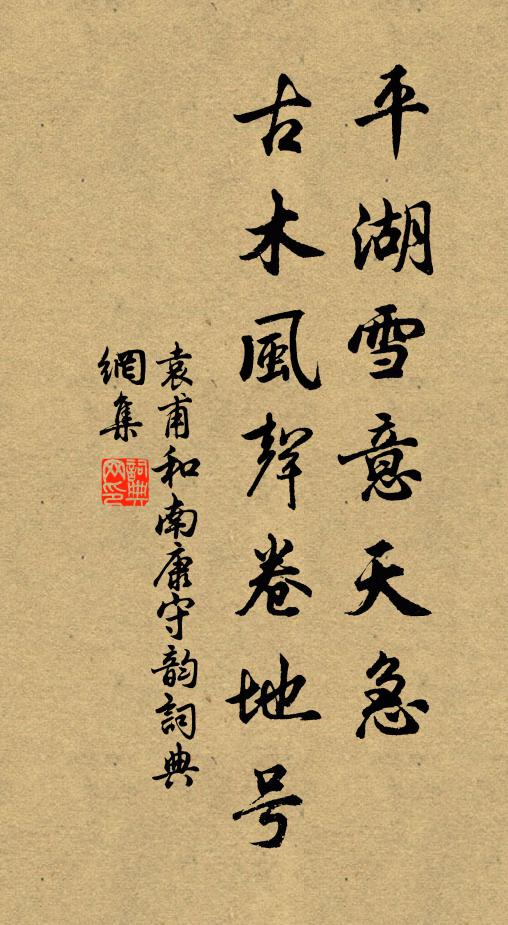 平湖雪意天急
古木風聲卷地号
袁甫和南康守韵詞典
網集
詞典网印